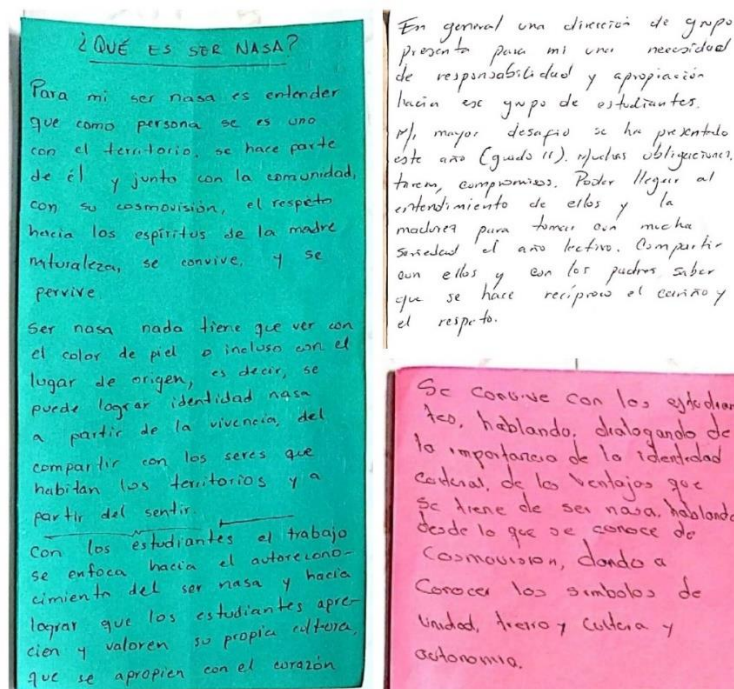 ¿QUÉ ES SER NASA?
Para mi ser nasa es entender
que como persona se es uno
con el territorio, se hace parte
de él y junto con la comunidad,
con su cosmovisión, el respeto
hacia los espíritus de la madre
naturaleza, se convive, y se
pervive
Ser nasa nada tiene que ver con
el color de piel o incluso con el
lugar de origen, es decir, se
puede lograr identidad nasa
a partir de la vivencia, del
compartir con los seres que
habitan los territorios y a
partir del sentir.
Con los estudiantes el trabajo
se enfoca hacia el autorecono-
cimiento del ser nasa y hacia
lograr que los estudiantes apre-
cien y valoren su propia cultura,
que se apropien con el corazón
En general una dirección de grupo
presenta para mi una necesidad
de responsabilidad y apropiación
hacia ese grupo de estudiantes.
Mi mayor desafio se ha presentado
este año (grado 11). Muchas obligaciones,
tareas, compromisos. Poder llegar al
entendimiento de ellos y la
madurez para tomar con mucha
seriedad el año lectivo. Compartir
con ellos y con los padres saber
que se hace reciproco el cariño y
el respeto.
Se convive con los estudian
tes, hablando, dialogando de
la importancia de la identidad
cultural, de las ventajas que
se tiene de ser nasa, hablando
desde lo que se conoce de
Cosmovision, dando a
Conocer los simbolos de
Unidad, tierra y Cultura y
autonomia.